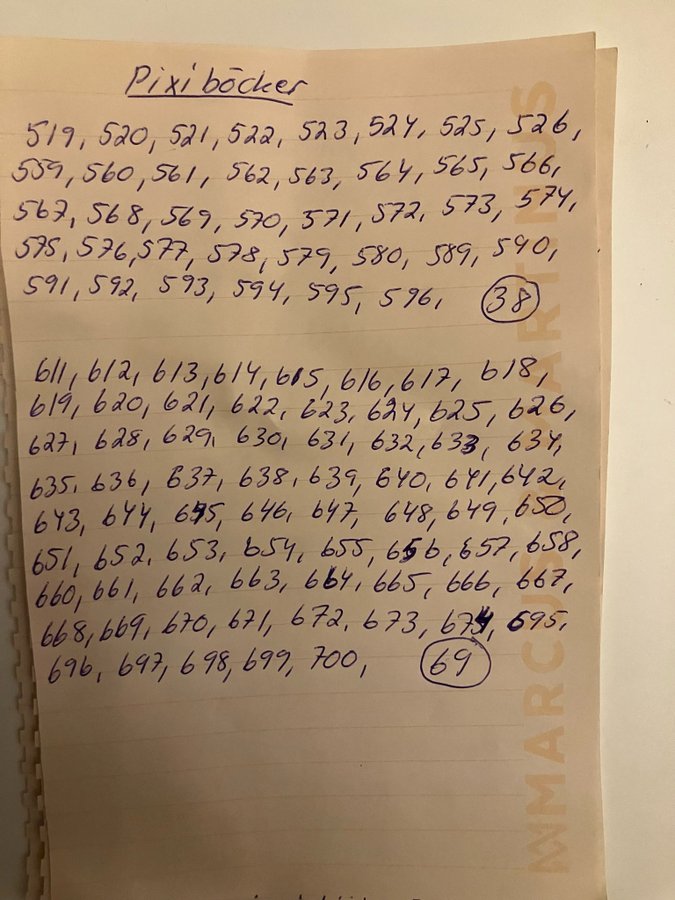 Pixi böcker
519, 520, 521, 522, 523, 524, 525, 526,
559, 560, 561, 562, 563, 564, 565, 566,
567, 568, 569, 570, 571, 572, 573, 574,
575, 576, 577, 578, 579, 580, 589, 590,
591, 592, 593, 594, 595, 596, 38
611, 612, 613, 614, 615, 616, 617, 618,
619, 620, 621, 622, 623, 624, 625, 626,
627, 628, 629, 630, 631, 632, 633, 634,
635, 636, 637, 638, 639, 640, 641, 642,
643, 644, 645, 646, 647, 648, 649, 650,
651, 652, 653, 654, 655, 656, 657, 658,
660, 661, 662, 663, 664, 665, 666, 667,
668, 669, 670, 671, 672, 673, 674, 695,
696, 697, 698, 699, 700, 69
MARCUS MARTINUS